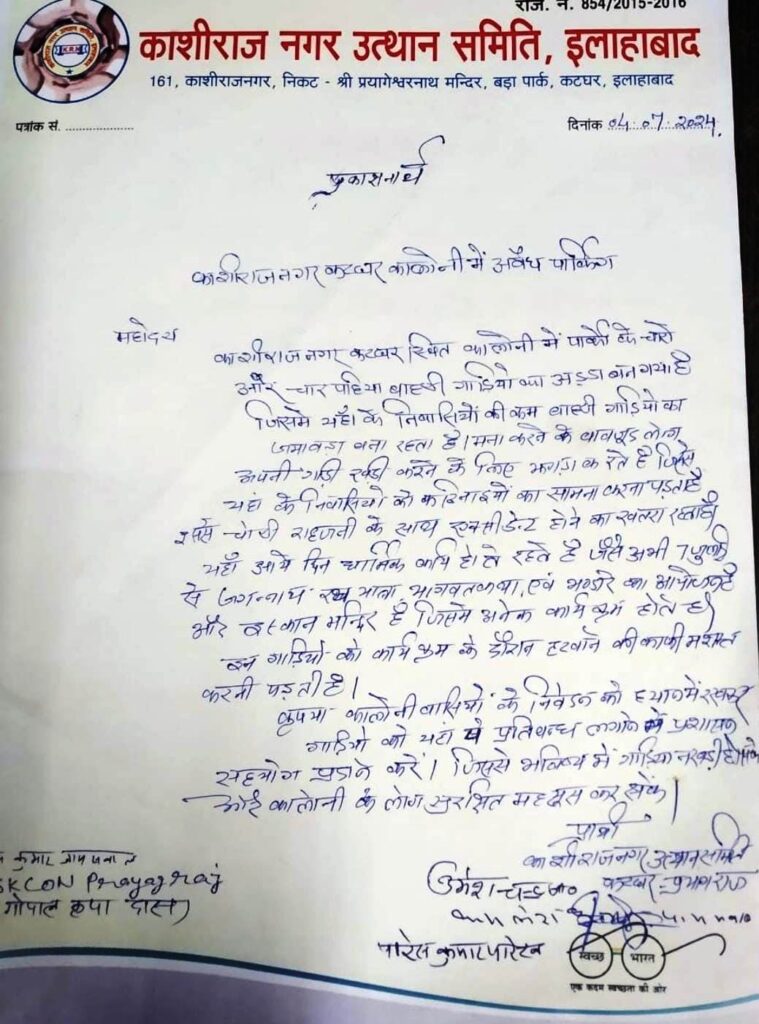 राज. न. 854/2015-2016
काशीराज नगर उत्थान समिति, इलाहाबाद
161, काशीराजनगर, निकट - श्री प्रयागेश्वरनाथ मन्दिर, बड़ा पार्क, कटघर, इलाहाबाद
पत्रांक सं. ..................
दिनांक 04.07.2024.
प्रकासनार्थ
काशीराज नगर कटघर कालोनी में अवैध पार्किंग
महोदय
काशीराज नगर कटघर स्थित कालोनी में पार्को के चारो
और चार पहिया बाहरी गाडियो का अड्डा बन गया है
जिसमे यहाँ के निवासियों की कम बाहरी गाडियो का
जमावड़ा बना रहता है। मना करने के वावजूद लोग
अपनी गाडी खडी करने के लिए झगड़ा करते है जिससे
यहां के निवासियों को कठिनाइयों का सामना करना पड़ता है
इससे चोरी राहजनी के साथ एक्सीडेन्ट होने का खतरा रहता है।
यहाँ आये दिन धार्मिक कार्य होते रहते है जैसे अभी 7 जुलाई
से जगन्नाथ रथ यात्रा, भागवतकथा, एवं भण्डारे का आयोजन है
और इस्कान मन्दिर है जिसमे अनेक कार्य क्रम होते है।
इन गाडियो को कार्य क्रम के दौरान हटवाने की काफी मसक्कत
करनी पड़ती है।
कृपया कालोनी वासियो के निवेदन को ध्यान में रखकर
गाडियो को यहां पे प्रतिबन्ध लगाने में प्रशासन
सहयोग प्रदान करें। जिससे भविष्य में गाडिया न खडी हो सके
कालोनी के लोग सुरक्षित महसूस कर सकें।
प्रार्थी
काशीराजनगर उत्थान समिति
कटघर, प्रयागराज
कुमार जायसवाल
ISKCON Prayagraj
गोपाल कृपा दास)
उमेश चन्द्र
पारेस कुमार पारेख
स्वच्छ भारत
एक कदम स्वच्छता की ओर